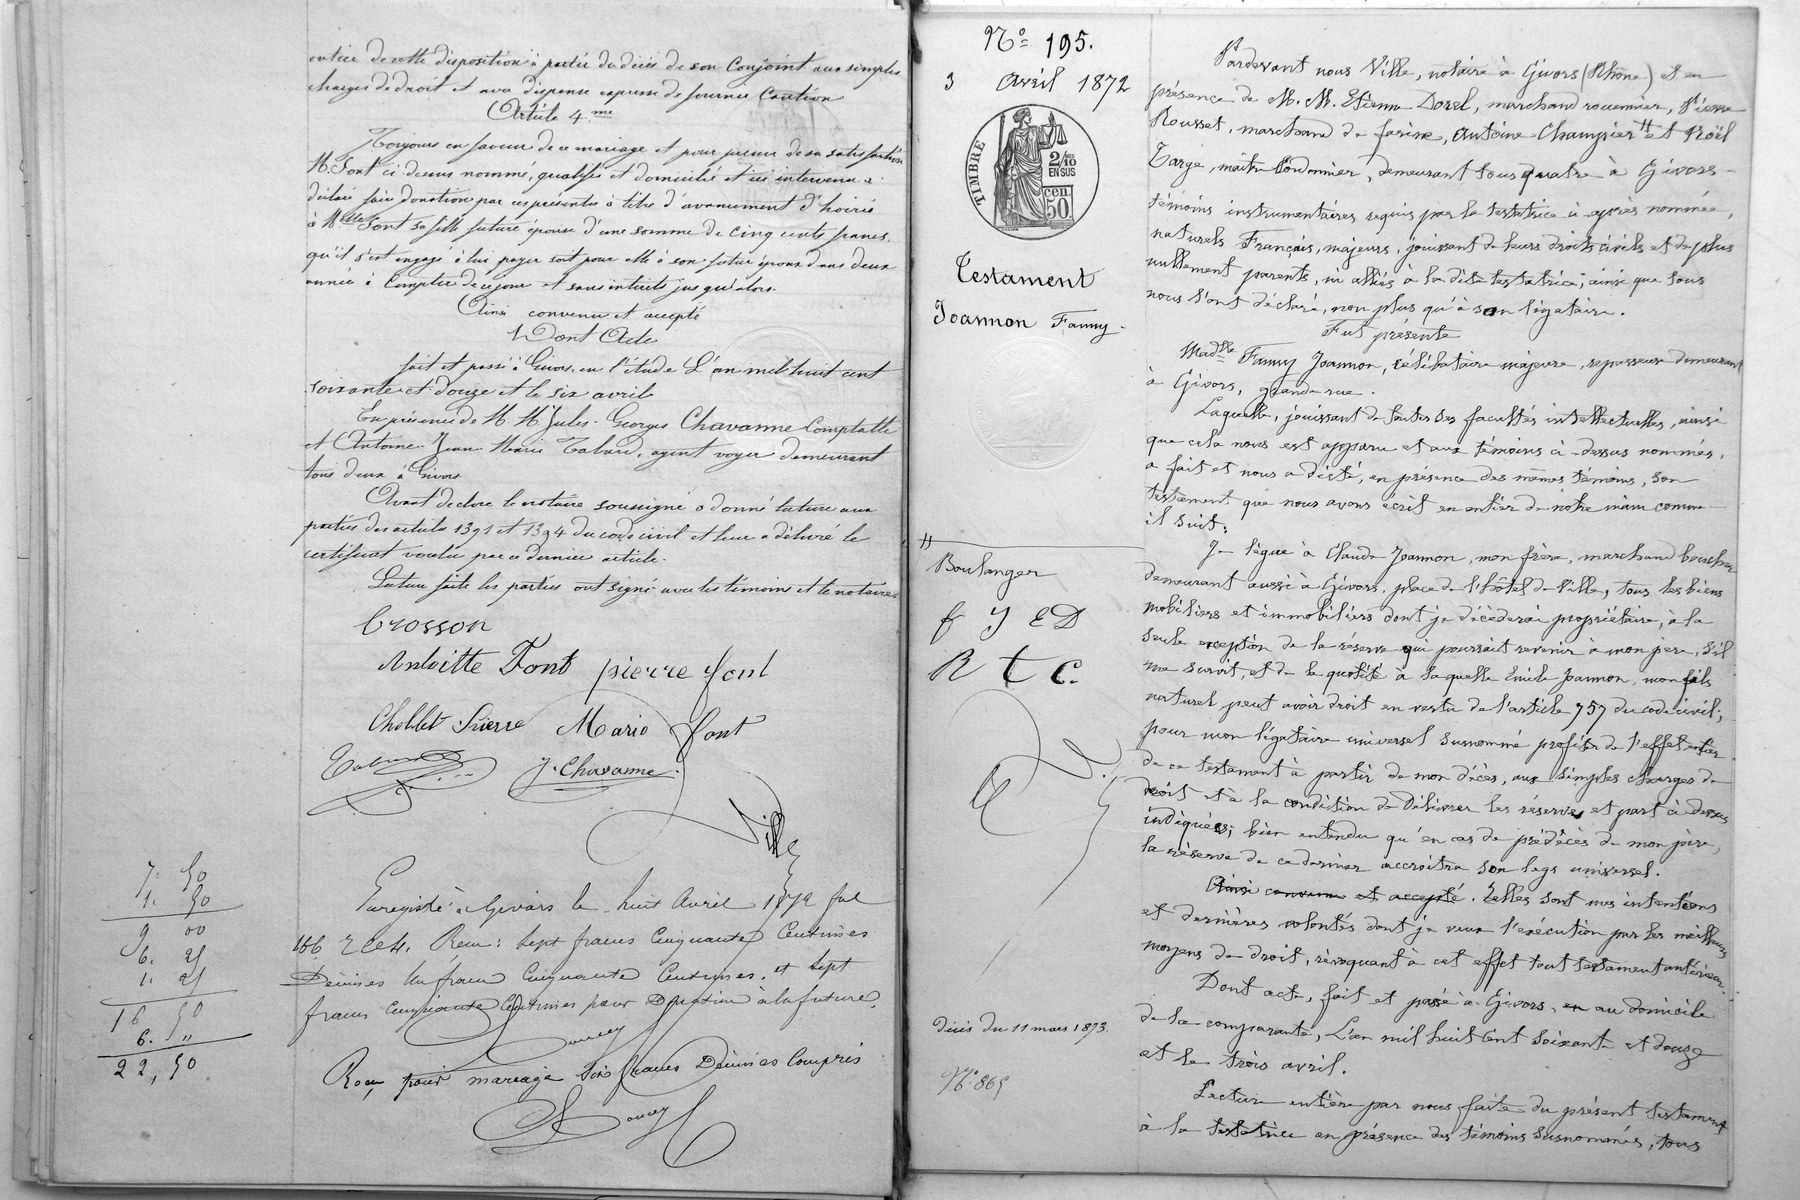 entier de cette disposition à partir du décès de son Conjoint aux simples
charges de droit et avec dispense expresse de fournir Caution
Article 4.me
Toujours en faveur de ce mariage et pour preuve de sa satisfaction
M. Font ci-dessus nommé, qualifié et domicilié et ici intervenu a
déclaré faire donation par ces présentes à titre d'avancement d'hoirie
à Melle Font sa fille future épouse d'une somme de cinq cents francs,
qu'il s'est engagé à lui payer soit pour elle à son futur époux dans deux
années à Compter de ce jour et sans intérêts jusqu'alors.
Ainsi convenu et accepté
Dont Acte
fait et passé à Givors, en l'étude L'an mil huit cent
soixante et douze et le six avril
En présence de M. M. Jules Georges Chavanne Comptable
et Antoine Jean Marie Tabard, agent voyer demeurant
tous deux à Givors
Avant de clore le notaire soussigné a donné lecture aux
parties des articles 1391 et 1394 du code civil et leur a délivré le
certificat voulu par ce dernier article.
Lecture faite les parties ont signé avec les témoins et le notaire
Crosson
Antoitte Font pierre font
Chollet Pierre Mario font
Tabard J. Chavanne
Ville
Enregistré à Givors le huit Avril 1872 fol
166 R C 4. Reçu : Sept francs Cinquante Centimes
Décimes Un franc Cinquante Centimes. et Sept
francs cinquante Centimes pour Donation à la future.
Reçu pour mariage Six francs Décimes Compris
7. 50
1. 50
9 00
6. 25
1. 25
16 50
6. "
22, 50
No 195.
3 Avril 1872
TIMBRE
2/10
EN SUS
50 cen.
Testament
Joannon Fanny.
Boulanger
f J ED
R t C.
décès du 11 mars 1873.
No 865
Pardevant nous Ville, notaire à Givors (Rhône) et en
présence de M. M. Etienne Dorel, marchand rouennier, Pierre
Rousset, marchand de farine, Antoine Champier et Noël
Targe, maître Cordonnier, demeurant tous quatre à Givors
témoins instrumentaires requis par la testatrice ci-après nommée,
naturels Français, majeurs, jouissant de leurs droits civils et de plus
nullement parents, ni alliés à la dite testatrice; ainsi que tous
nous l'ont déclaré, non plus qu'à son légataire.
Fut présente
Madlle Fanny Joannon, célibataire majeure, repasseuse demeurant
à Givors, grande rue.
Laquelle, jouissant de toutes ses facultés intellectuelles, ainsi
que cela nous est apparu et aux témoins ci-dessus nommés,
a fait et nous a dicté, en présence des mêmes témoins, son
testament que nous avons écrit en entier de notre main comme
il suit:
Je lègue à Claude Joannon, mon frère, marchand boucher
demeurant aussi à Givors, place de l'hôtel de Ville, tous les biens
mobiliers et immobiliers dont je décèderai propriétaire, à la
seule exception de la réserve qui pourrait revenir à mon père, s'il
me survit, et de la quotité à laquelle Emile Joannon, mon fils
naturel peut avoir droit en vertu de l'article 757 du code civil;
pour mon légataire universel susnommé profiter de l'effet entier
de ce testament à partir de mon décès, aux simples charges de
droit et à la condition de délivrer les réserve et part ci-dessus
indiquées; bien entendu qu'en cas de prédécès de mon père,
la réserve de ce dernier accroitra son legs universel.
Ainsi convenu et accepté. Telles sont mes intentions
et dernières volontés dont je veux l'exécution par les meilleurs
moyens de droit, révoquant à cet effet tout testament antérieur.
Dont acte, fait et passé à Givors, en au domicile
de la comparante, L'an mil huit Cent soixante et douze
et le trois avril.
Lecture entière par nous faite du présent testament
à la testatrice en présence des témoins susnommés, tous